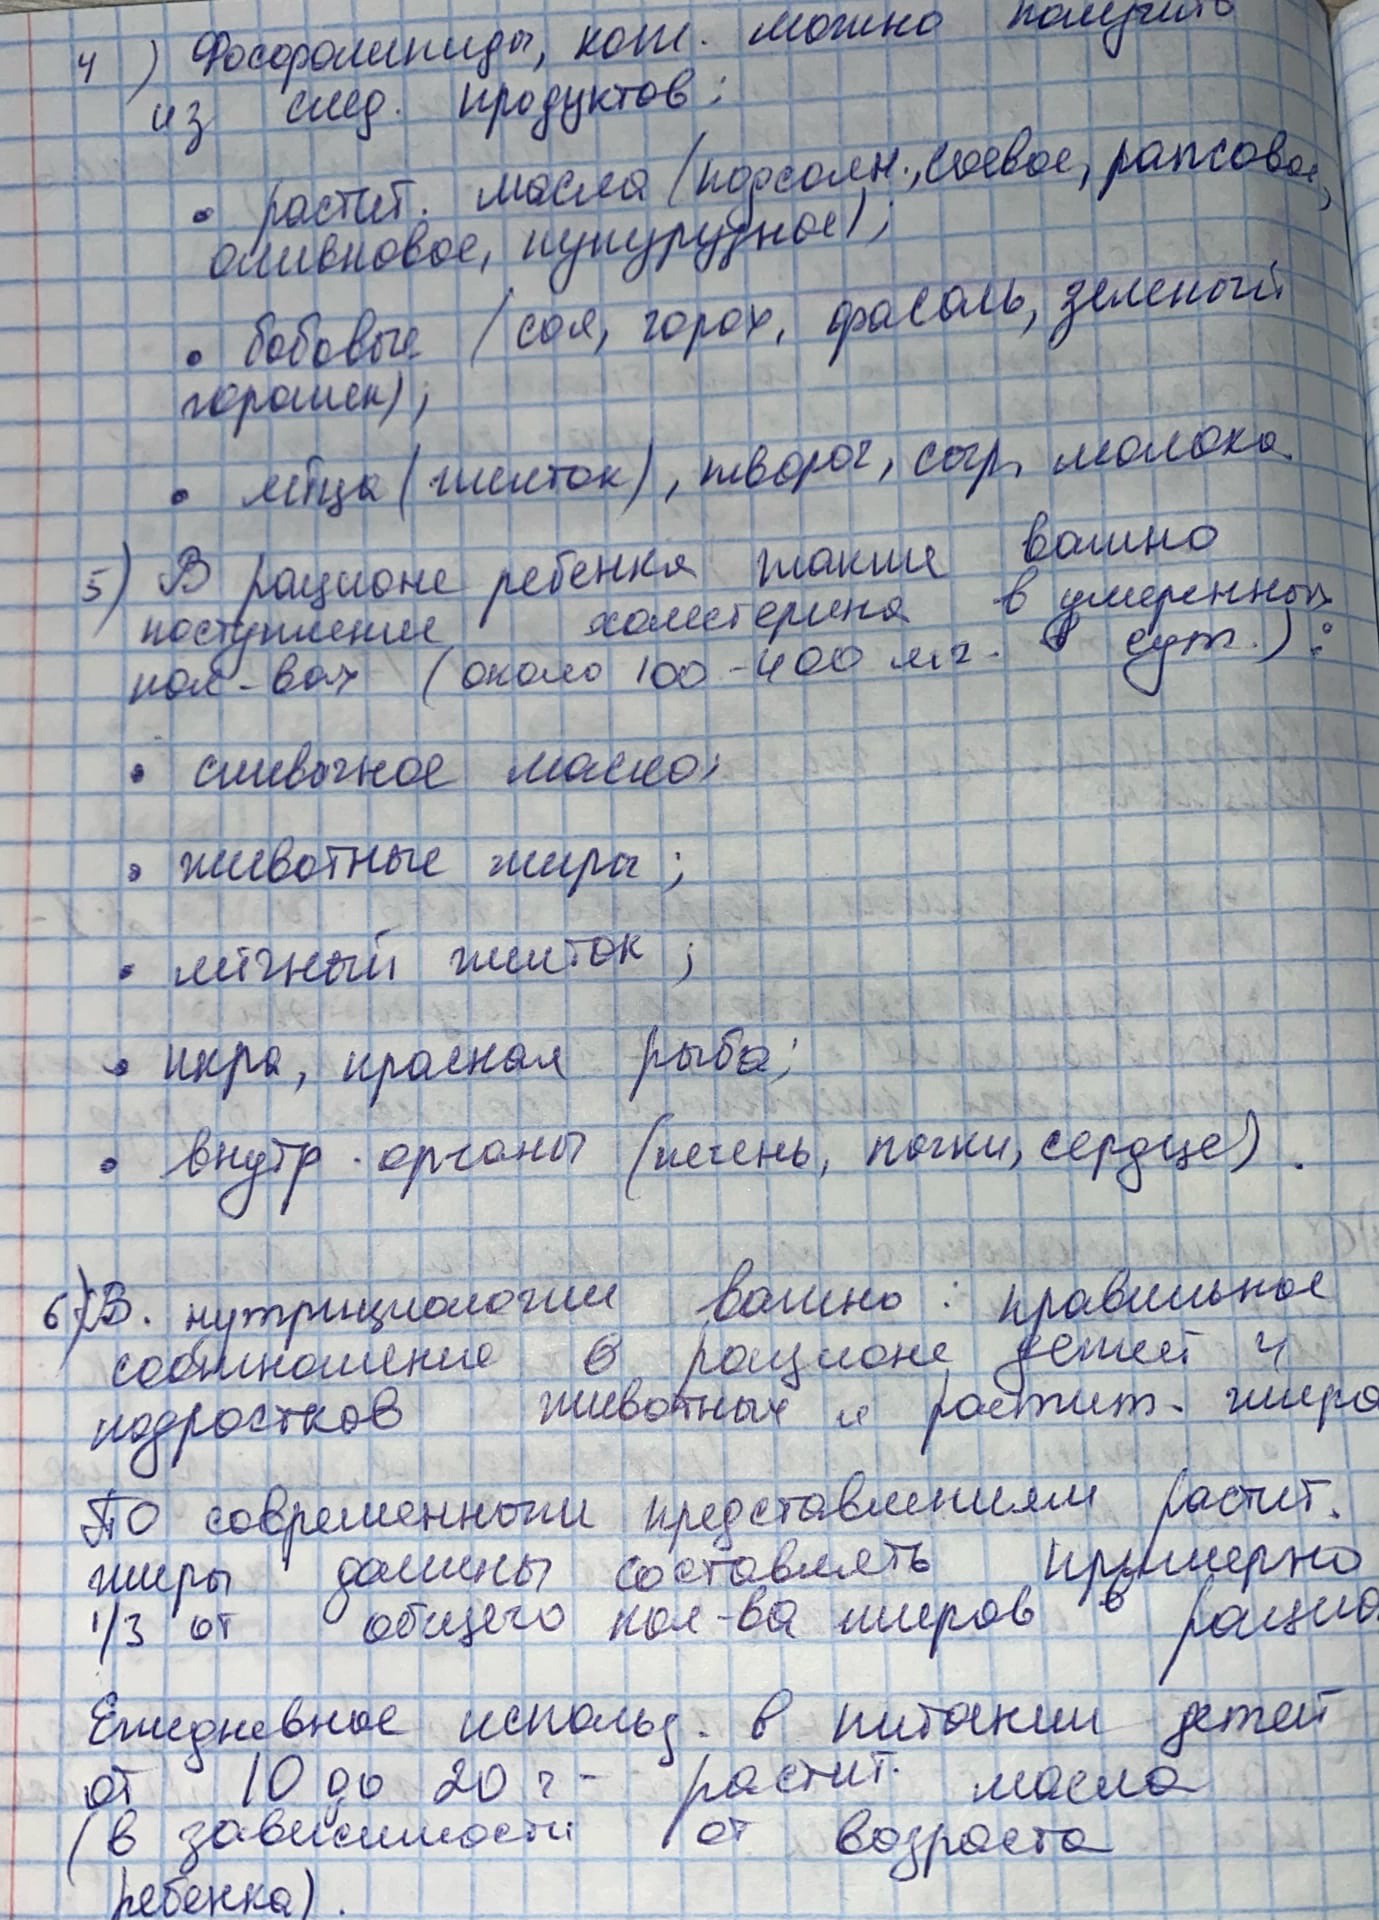 4) Фосфолипиды, кот. можно получить
из след. продуктов:
• растит. масла (подсолн., соевое, рапсовое,
оливковое, кукурузное);
• бобовые (соя, горох, фасоль, зеленый
горошек);
• яйца (желток), творог, сыр, молоко.
5) В рационе ребенка также важно
поступление холестерина в умеренных
кол-вах (около 100-400 мг. в сут.):
• сливочное масло;
• животные жиры;
• яичный желток;
• икра, красная рыба;
• внутр. органы (печень, почки, сердце).
6) В. нутрициологии важно: правильное
соотношение в рационе детей и
подростков животных и растит. жиро
По современным представлениям растит.
жиры должны составлять примерно
1/3 от общего кол-ва жиров в рацио
Ежедневное использ. в питании детей
от 10 до 20 г - растит. масла
(в зависимости от возраста
ребенка).